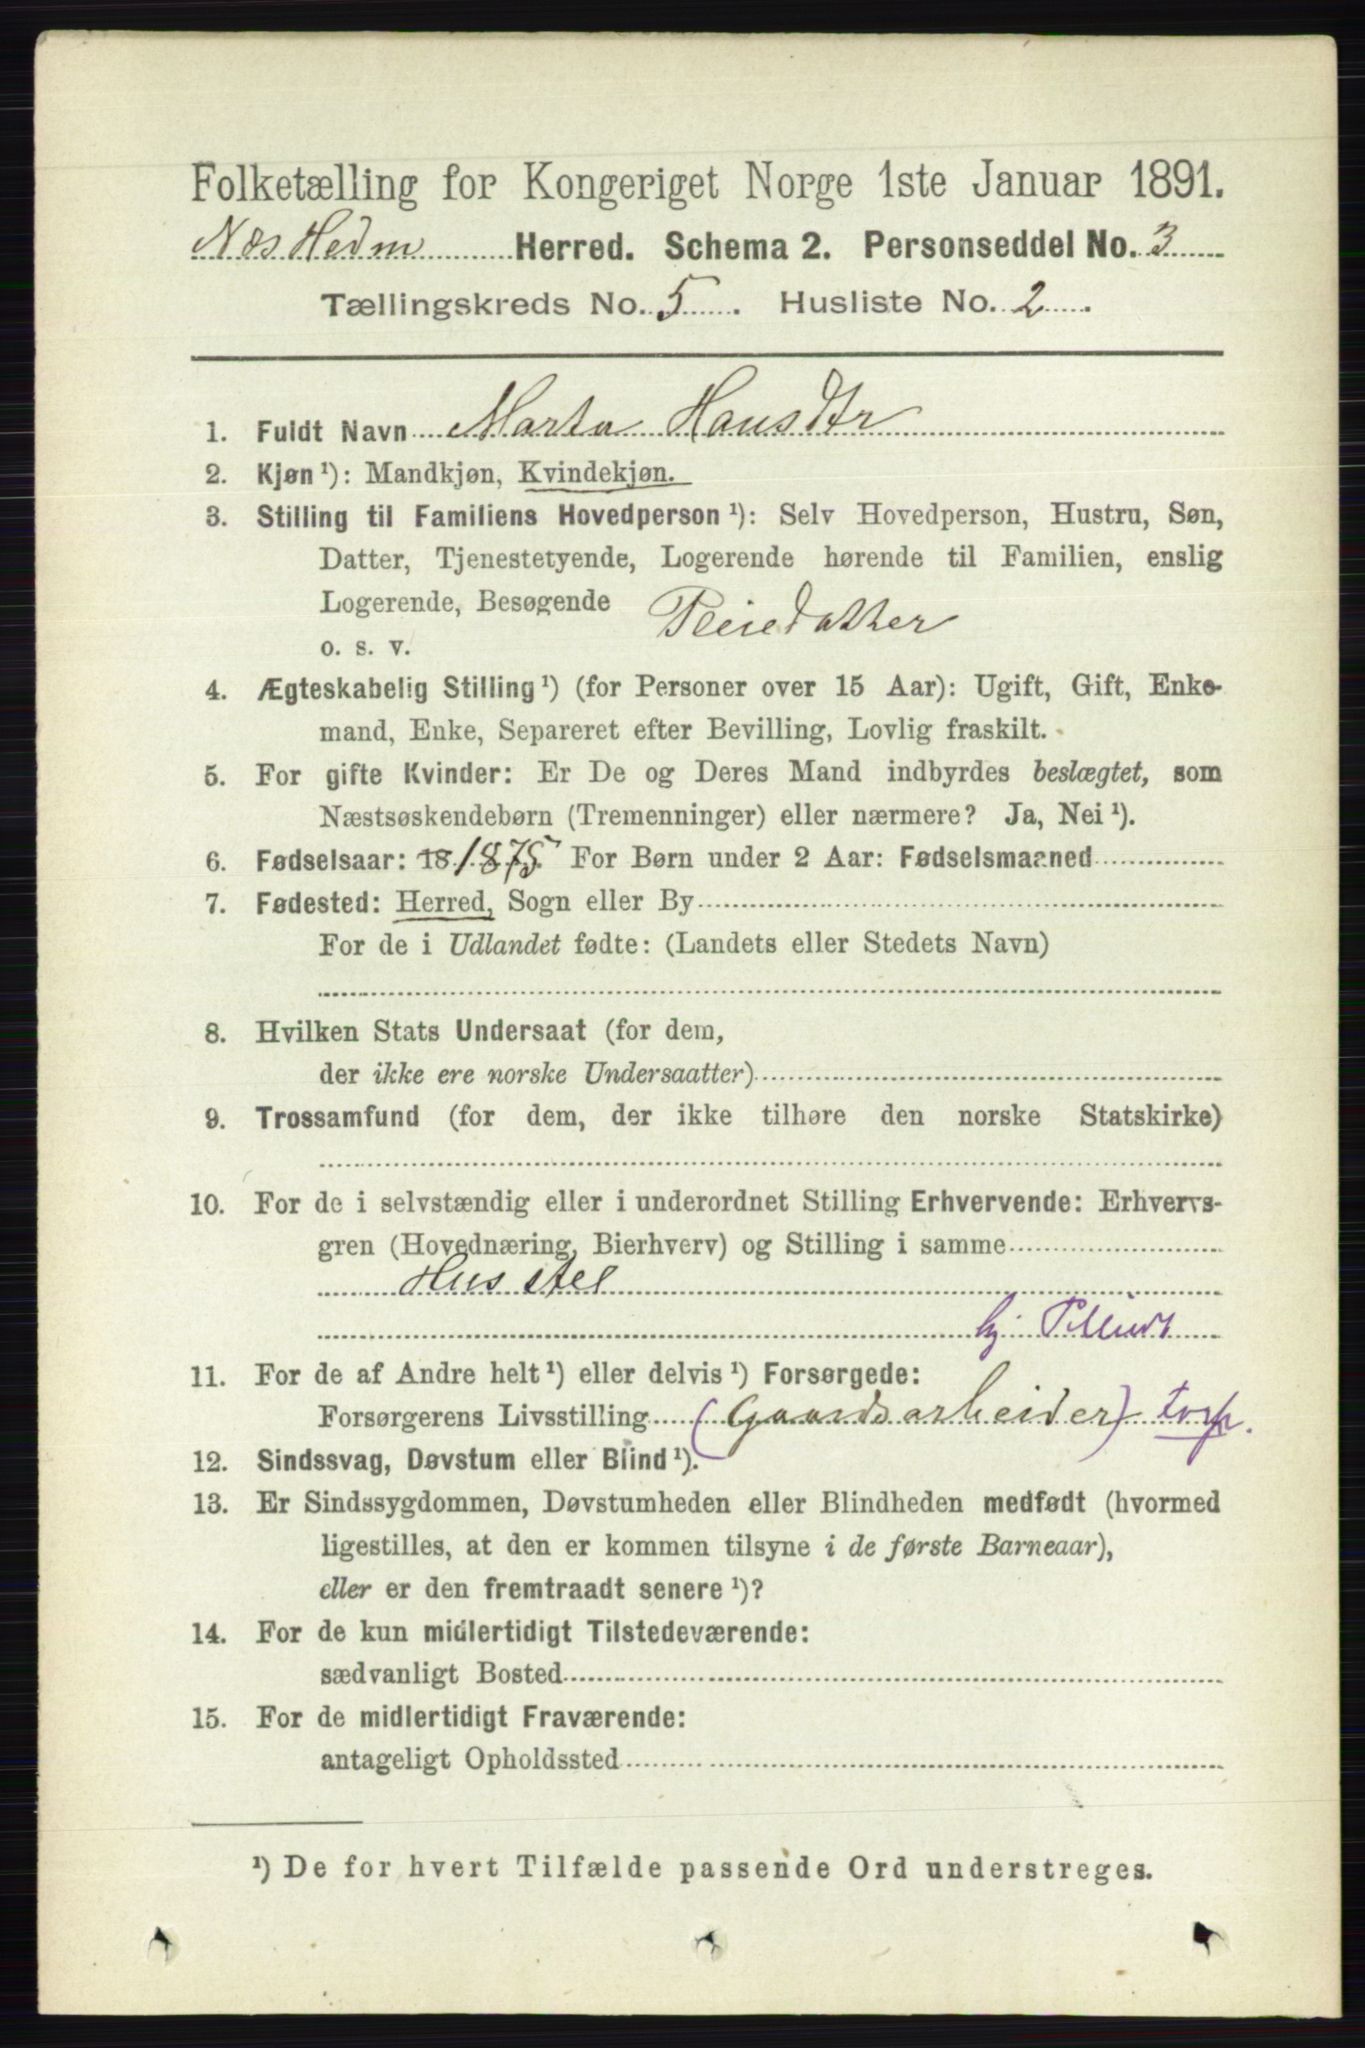 Folketælling for Kongeriget Norge 1ste Januar 1891.
Næs Hedm Herred. Schema 2. Personseddel No. 3
Tællingskreds No. 5. Husliste No. 2.
1. Fuldt Navn Marta Hansdtr
2. Kjøn ¹): Mandkjøn, Kvindekjøn.
3. Stilling til Familiens Hovedperson ¹): Selv Hovedperson, Hustru, Søn,
Datter, Tjenestetyende, Logerende hørende til Familien, enslig
Logerende, Besøgende
Pleiedatter
o. s. v.
4. Ægteskabelig Stilling ¹) (for Personer over 15 Aar): Ugift, Gift, Enke-
mand, Enke, Separeret efter Bevilling, Lovlig fraskilt.
5. For gifte Kvinder: Er De og Deres Mand indbyrdes beslægtet, som
Næstsøskendebørn (Tremenninger) eller nærmere? Ja, Nei ¹).
6. Fødselsaar: 18 1875 For Børn under 2 Aar: Fødselsmaaned
7. Fødested: Herred, Sogn eller By
For de i Udlandet fødte: (Landets eller Stedets Navn)
8. Hvilken Stats Undersaat (for dem,
der ikke ere norske Undersaatter)
9. Trossamfund (for dem, der ikke tilhøre den norske Statskirke)
10. For de i selvstændig eller i underordnet Stilling Erhvervende: Erhvervs-
gren (Hovednæring, Bierhverv) og Stilling i samme
Hus stel
11. For de af Andre helt ¹) eller delvis ¹) Forsørgede:
Forsørgerens Livsstilling (Gaardsarbeider)
12. Sindssvag, Døvstum eller Blind ¹).
13. Er Sindssygdommen, Døvstumheden eller Blindheden medfødt (hvormed
ligestilles, at den er kommen tilsyne i de første Barneaar),
eller er den fremtraadt senere ¹)?
14. For de kun midlertidigt Tilstedeværende:
sædvanligt Bosted
15. For de midlertidigt Fraværende:
antageligt Opholdssted
¹) De for hvert Tilfælde passende Ord understreges.